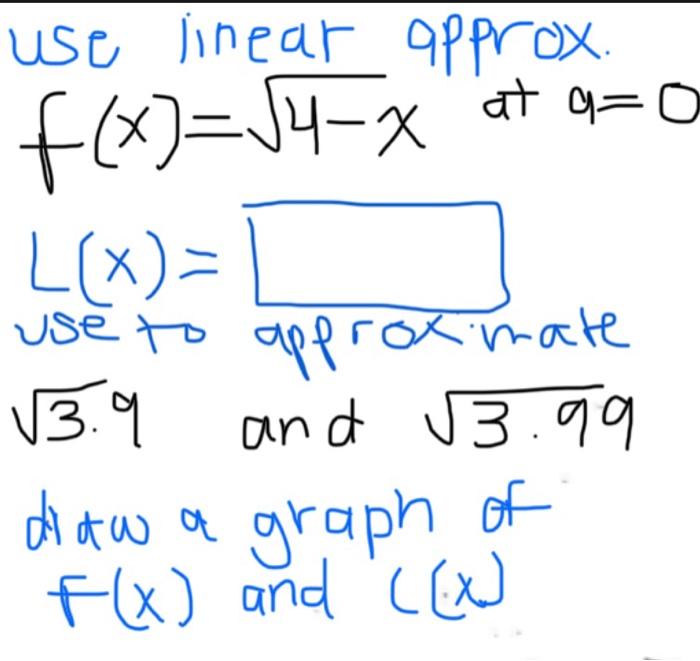 use linear approx.
f(x)=√4-x at a=0
L(x)=
use to approximate
√3.9 and √3.99
draw a graph of
f(x) and L(x)